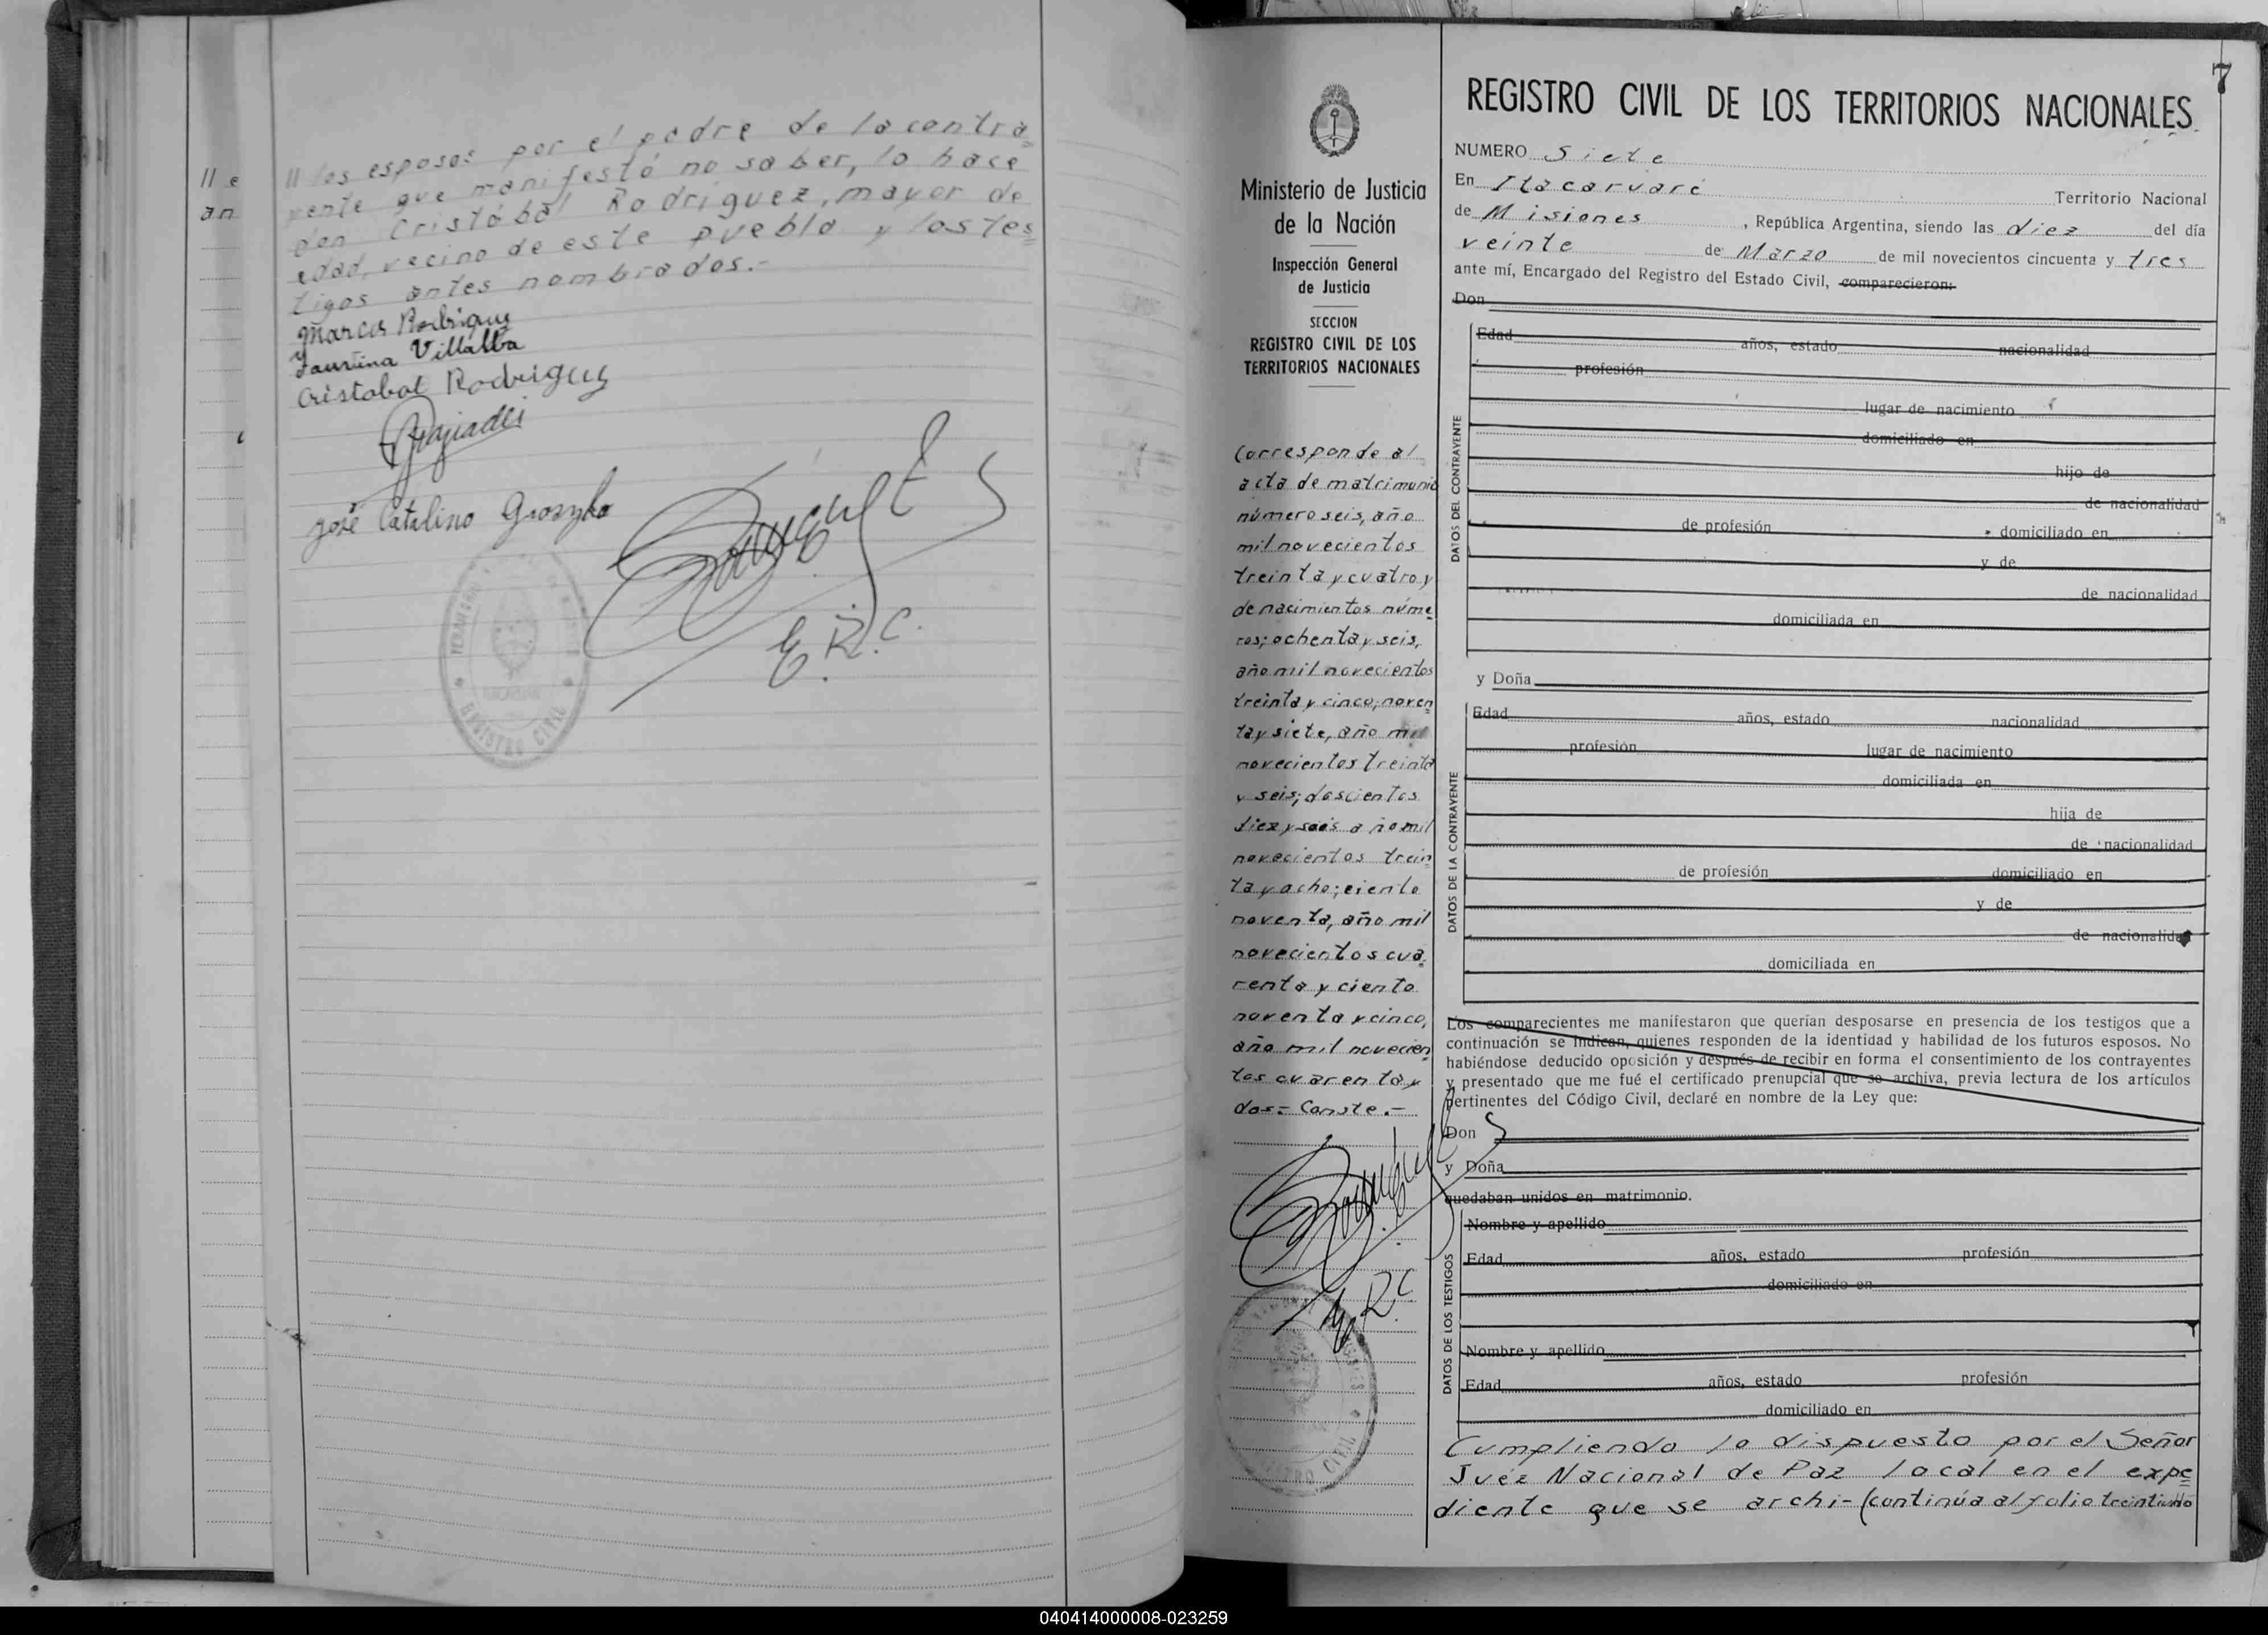 ll e
an
ll los esposos por el padre de la contra=
yente que manifestó no saber, lo hace
don Cristóbal Rodriguez, mayor de
edad, vecino de este pueblo y los tes=
tigos antes nombrados.-
Marcos Rodriguez
Faustina Villalba
Cristobal Rodriguez
José Catalino
E. R. C.
REGISTRO CIVIL
7
Ministerio de Justicia
de la Nación
Inspección General
de Justicia
SECCION
REGISTRO CIVIL DE LOS
TERRITORIOS NACIONALES
Corresponde al
acta de matrimonio
número seis, año
mil novecientos
treinta y cuatro y
de nacimientos núme=
ros; ochenta y seis,
año mil novecientos
treinta y cinco; noven=
ta y siete, año mil
novecientos treinta
y seis; doscientos
diez y seis año mil
novecientos trein=
ta y ocho; ciento
noventa, año mil
novecientos cua=
renta y ciento
noventa y cinco,
año mil novecien=
tos cuarenta y
dos= Conste.-
E. R. C.
REGISTRO CIVIL DE LOS TERRITORIOS NACIONALES
NUMERO Siete
En Itacaruaré Territorio Nacional
de Misiones, República Argentina, siendo las diez del día
veinte de Marzo de mil novecientos cincuenta y tres
ante mí, Encargado del Registro del Estado Civil, comparecieron:
Don
DATOS DEL CONTRAYENTE
Edad años, estado nacionalidad
profesión
lugar de nacimiento
domiciliado en
hijo de
de nacionalidad
de profesión domiciliado en
y de
de nacionalidad
domiciliada en
y Doña
DATOS DE LA CONTRAYENTE
Edad años, estado nacionalidad
profesión lugar de nacimiento
domiciliada en
hija de
de nacionalidad
de profesión domiciliado en
y de
de nacionalidad
domiciliada en
Los comparecientes me manifestaron que querían desposarse en presencia de los testigos que a
continuación se indican, quienes responden de la identidad y habilidad de los futuros esposos. No
habiéndose deducido oposición y después de recibir en forma el consentimiento de los contrayentes
y presentado que me fué el certificado prenupcial que se archiva, previa lectura de los artículos
pertinentes del Código Civil, declaré en nombre de la Ley que:
Don
y Doña
quedaban unidos en matrimonio.
DATOS DE LOS TESTIGOS
Nombre y apellido
Edad años, estado profesión
domiciliado en
Nombre y apellido
Edad años, estado profesión
domiciliado en
Cumpliendo lo dispuesto por el Señor
Juéz Nacional de Paz local en el expe=
diente que se archi-(continúa al folio treintiuno
040414000008-023259